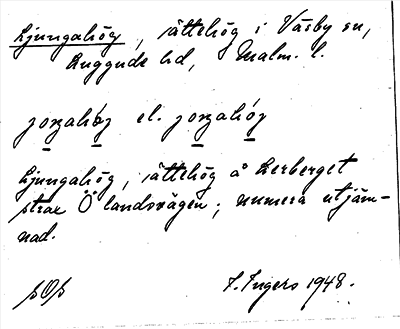 Ljungahög, jättehög i Väsby sn,
Luggude hd, Malm. l.
joŋahög el. joŋahög
Ljungahög, jättehög å Lerberget
strax Ö landsvägen; numera utjäm-
nad.
SOS
I. Ingers 1948.